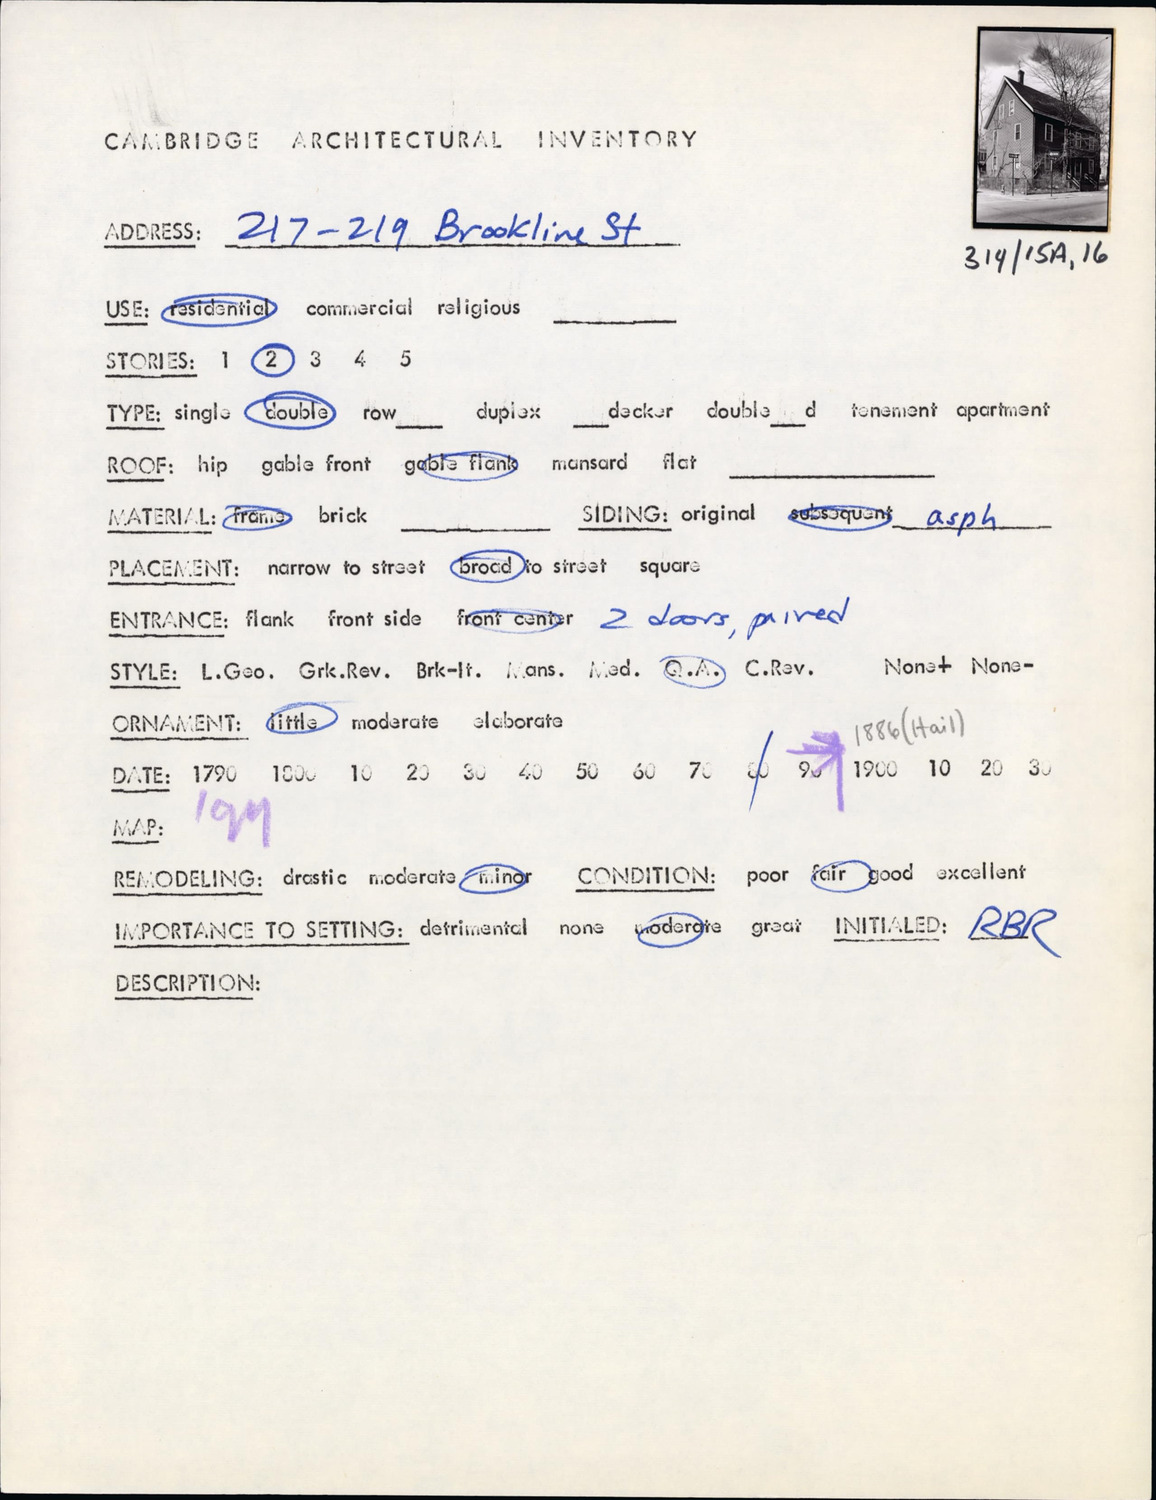 CAMBRIDGE ARCHITECTURAL INVENTORY
ADDRESS: 217-219 Brookline St
314/15A, 16
USE: residential commercial religious
STORIES: 1 2 3 4 5
TYPE: single double row___ duplex ___decker double___d tenement apartment
ROOF: hip gable front gable flank mansard flat
MATERIAL: frame brick ___ SIDING: original subsequent asph
PLACEMENT: narrow to street broad to street square
ENTRANCE: flank front side front center 2 doors, paired
STYLE: L.Geo. Grk.Rev. Brk-It. Mans. Med. Q.A. C.Rev. None+ None-
ORNAMENT: little moderate elaborate
1886 (Hail)
DATE: 1790 1800 10 20 30 40 50 60 70 80 90 1900 10 20 30
MAP:
REMODELING: drastic moderate minor CONDITION: poor fair good excellent
IMPORTANCE TO SETTING: detrimental none moderate great INITIALED: RBR
DESCRIPTION: